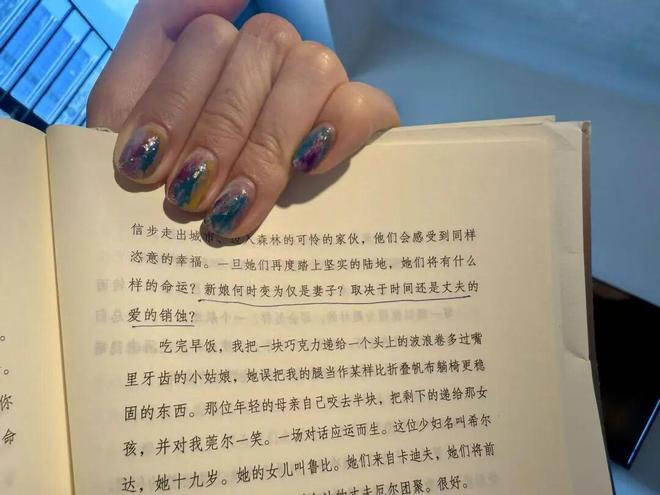 信步走出城市、
人森林的可怜的家伙，他们会感受到同样
恣意的幸福。一旦她们再度踏上坚实的陆地，她们将有什么
样的命运？新娘何时变为仅是妻子？取决于时间还是丈夫的
爱的销蚀？
吃完早饭，我把一块巧克力递给一个头上的波浪卷多过嘴
里牙齿的小姑娘，她误把我的腿当作某样比折叠帆布躺椅更稳
固的东西。那位年轻的母亲自己咬去半块，把剩下的递给那女
孩，并对我莞尔一笑。一场对话应运而生。这位少妇名叫希尔
达，她十九岁。她的女儿叫鲁比。她们来自卡迪夫，她们将前
丈夫厄尔团聚。很好。
。
。
你
命